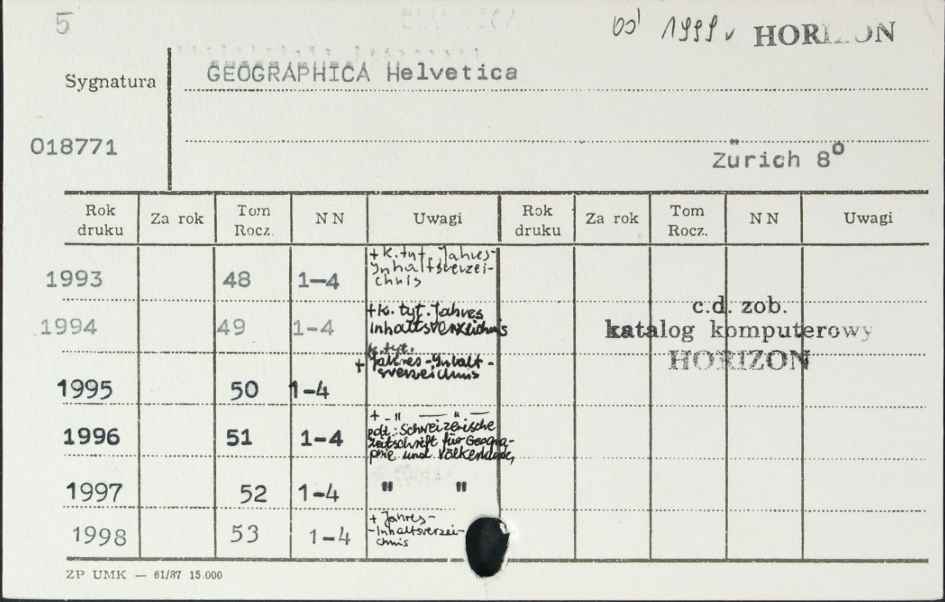 5
od 1999 r HORIZON
Sygnatura
GEOGRAPHICA Helvetica
018771
Zürich 8⁰
Rok druku Za rok Tom Rocz. N N Uwagi Rok druku Za rok Tom Rocz. N N Uwagi
1993 48 1-4 + k. tyt. Jahres-
Inhaltsverzei-
chnis
c.d. zob.
katalog komputerowy
HORIZON
1994 49 1-4 + k. tyt. Jahres
inhaltsverzeichnis
1995 50 1-4 k. tyt.
+ Jahres-Inhalt-
sverzeichnis
1996 51 1-4 + - " — " —
pdt.: Schweizerische
Zeitschrift für Geogra-
phie und Völkerkunde,
1997 52 1-4 " "
1998 53 1-4 + Jahres-
-Inhaltsverzei-
chnis
ZP UMK — 61/87 15.000